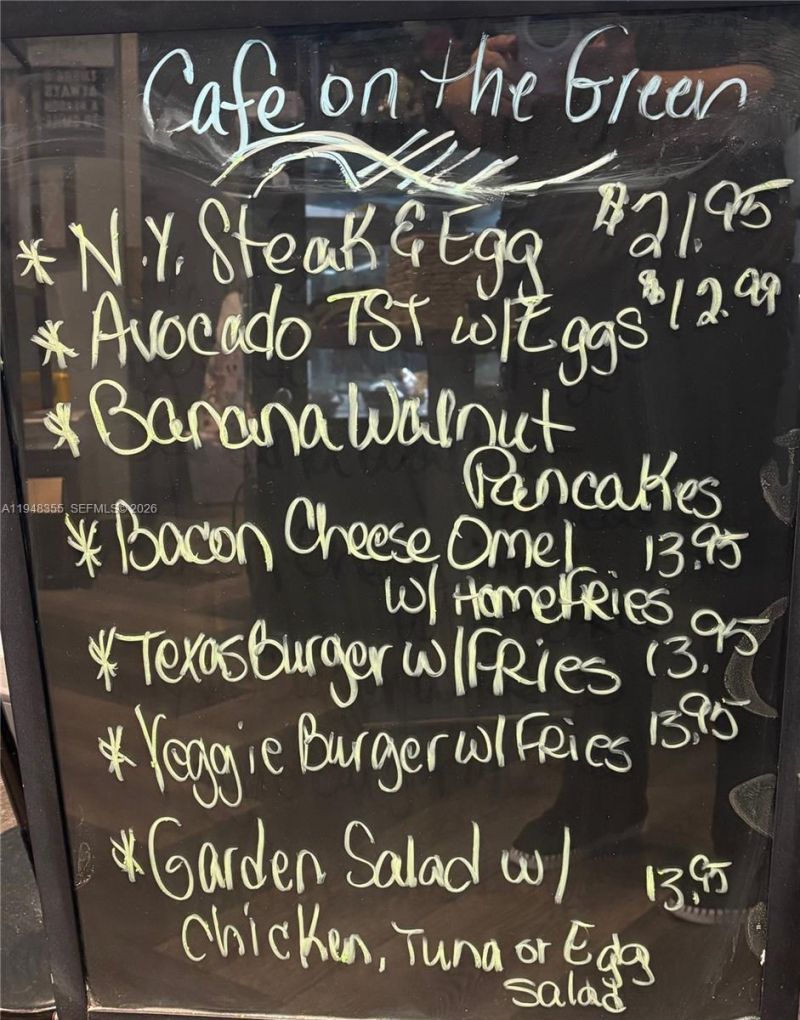 Cafe on the Green
* N.Y. Steak & Egg $21.95
* Avocado TST w/Eggs $12.99
* Banana Walnut
Pancakes
A11948355 SEFMLS© 2026
* Bacon Cheese Omel 13.95
w/ HomeFRies
* Texas Burger w/FRies 13.95
* Veggie Burger w/ FRies 13.95
* Garden Salad w/ 13.95
Chicken, Tuna or Egg
Salad